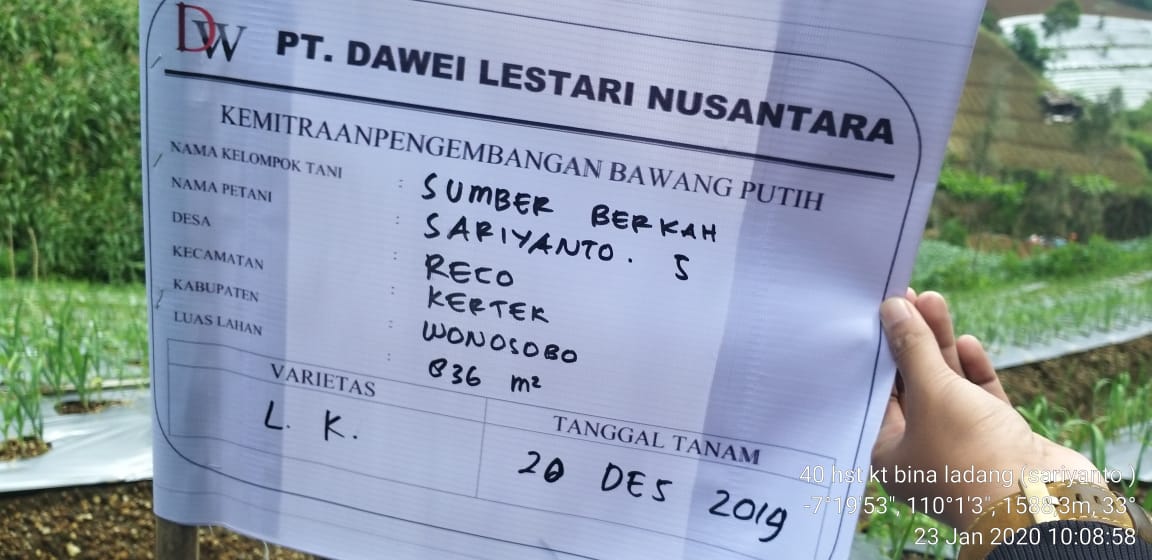 DW PT. DAWEI LESTARI NUSANTARA
KEMITRAANPENGEMBANGAN BAWANG PUTIH
NAMA KELOMPOK TANI : SUMBER BERKAH
NAMA PETANI : SARIYANTO. S
DESA : RECO
KECAMATAN : KERTEK
KABUPATEN : WONOSOBO
LUAS LAHAN : 836 m²
VARIETAS TANGGAL TANAM
L. K. 20 DES 2019
40 hst kt bina ladang (sariyanto )
-7°19'53", 110°1'3", 1588,3m, 33°
23 Jan 2020 10:08:58